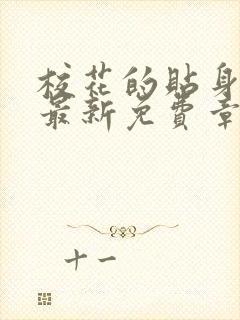 校花的贴身
最新免費章
十一